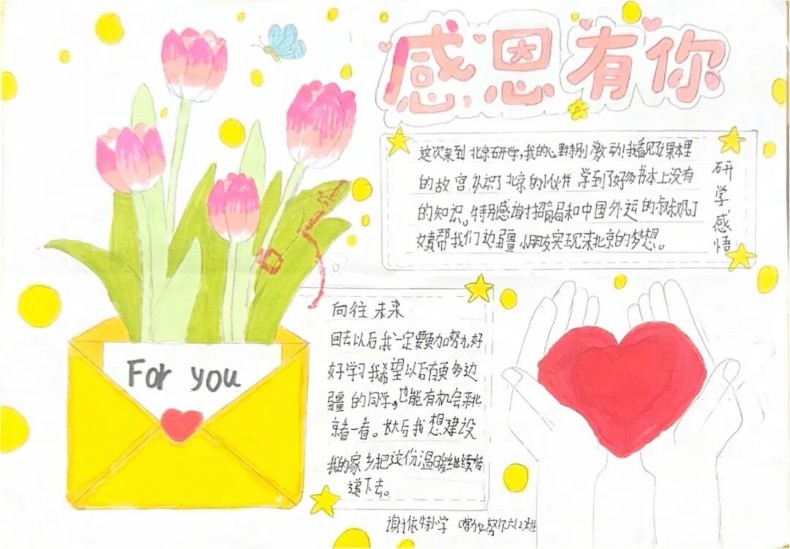 感恩有你
这次来到北京研学,我的心野特别激动!我看见了课本里
的故宫,认识了北京的小伙伴,学到了好多书本上没有
的知识。特别感谢招商局和中国外运的叔叔阿
姨帮我们边疆小朋友实现来北京的梦想。
研学感悟
向往未来
回去以后我一定要加努力好
好学习我希望以后有更多边
疆的同学,也能有机会来北
京看一看。长大后我想建设
我的家乡把这份温暖继续传
递下去。
For you